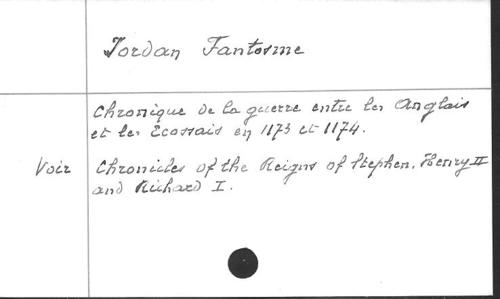 Jordan Fantosme
Chronique de la guerre entre les Anglais
et les Ecossais en 1173 et 1174.
Voir Chronicles of the Reigns of Stephen, Henry II
and Richard I.